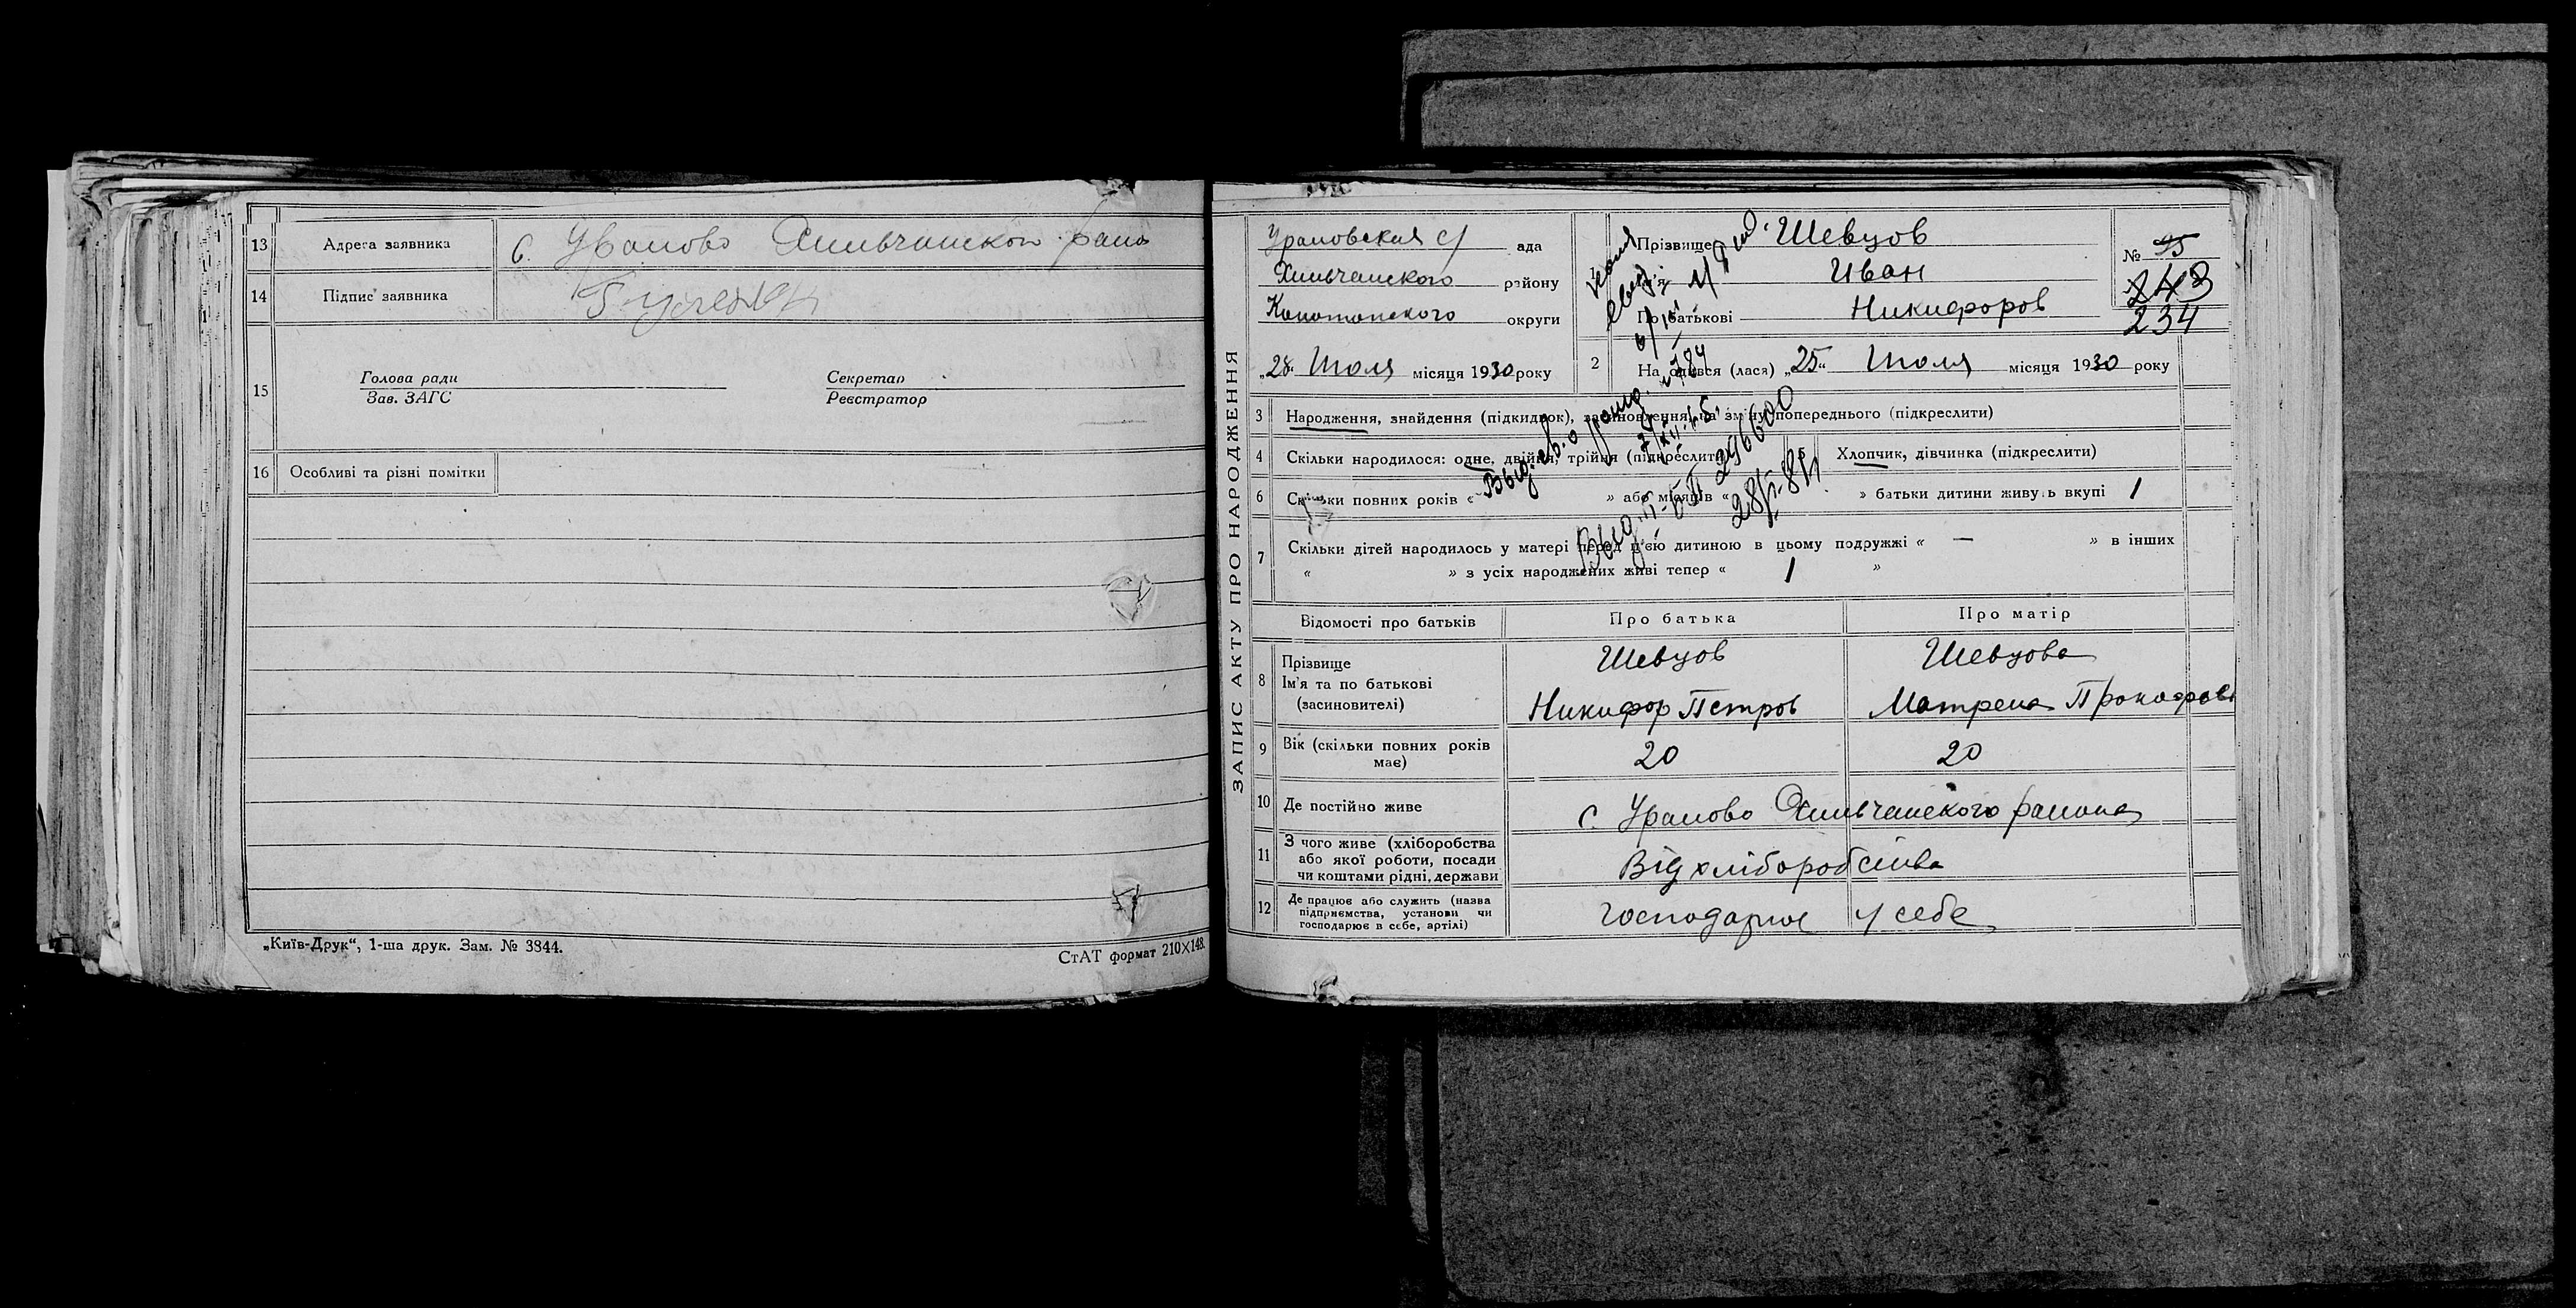 13 Адреса заявника с. Уралово Хильчанского района
14 Підпис заявника
15 Голова ради Секретар
Зав. ЗАГС Реєстратор
16 Особливі та різні помітки
„Київ-Друк“, 1-ша друк. Зам. № 3844.
СтАТ формат 210×148.
ЗАПИС АКТУ ПРО НАРОДЖЕННЯ
Ураловская с/ ада
Хильчанского району
Конотопского округи
„28“ Июля місяця 1930 року
1 Прізвище Шевцов
Ім'я Иван
По батькові Никифоров
№ 95
243
234
2 На одився (лася) „25“ Июля місяця 1930 року
3 Народження, знайдення (підкидьок), засиновлення, на зміну попереднього (підкреслити)
4 Скільки народилося: одне, двійня, трійня (підкреслити) 5 Хлопчик, дівчинка (підкреслити)
6 Скільки повних років « » або місяців « » батьки дитини живуть вкупі 1
7 Скільки дітей народилось у матері перед цією дитиною в цьому подружжі « — » в інших
« » з усіх народжених живі тепер « 1 »
Выд. св. о рожд.
296600
28/I-81
Відомості про батьків Про батька Про матір
8 Прізвище Шевцов Шевцова
Ім'я та по батькові
(засиновителі) Никифор Петров Матрена Прокофров
9 Вік (скільки повних років має) 20 20
10 Де постійно живе с. Уралово Хильчанского района
11 З чого живе (хліборобства
або якої роботи, посади
чи коштами рідні, держави Від хліборобства
12 Де працює або служить (назва
підприємства, установи чи
господарює в себе, артілі) господарює у себе